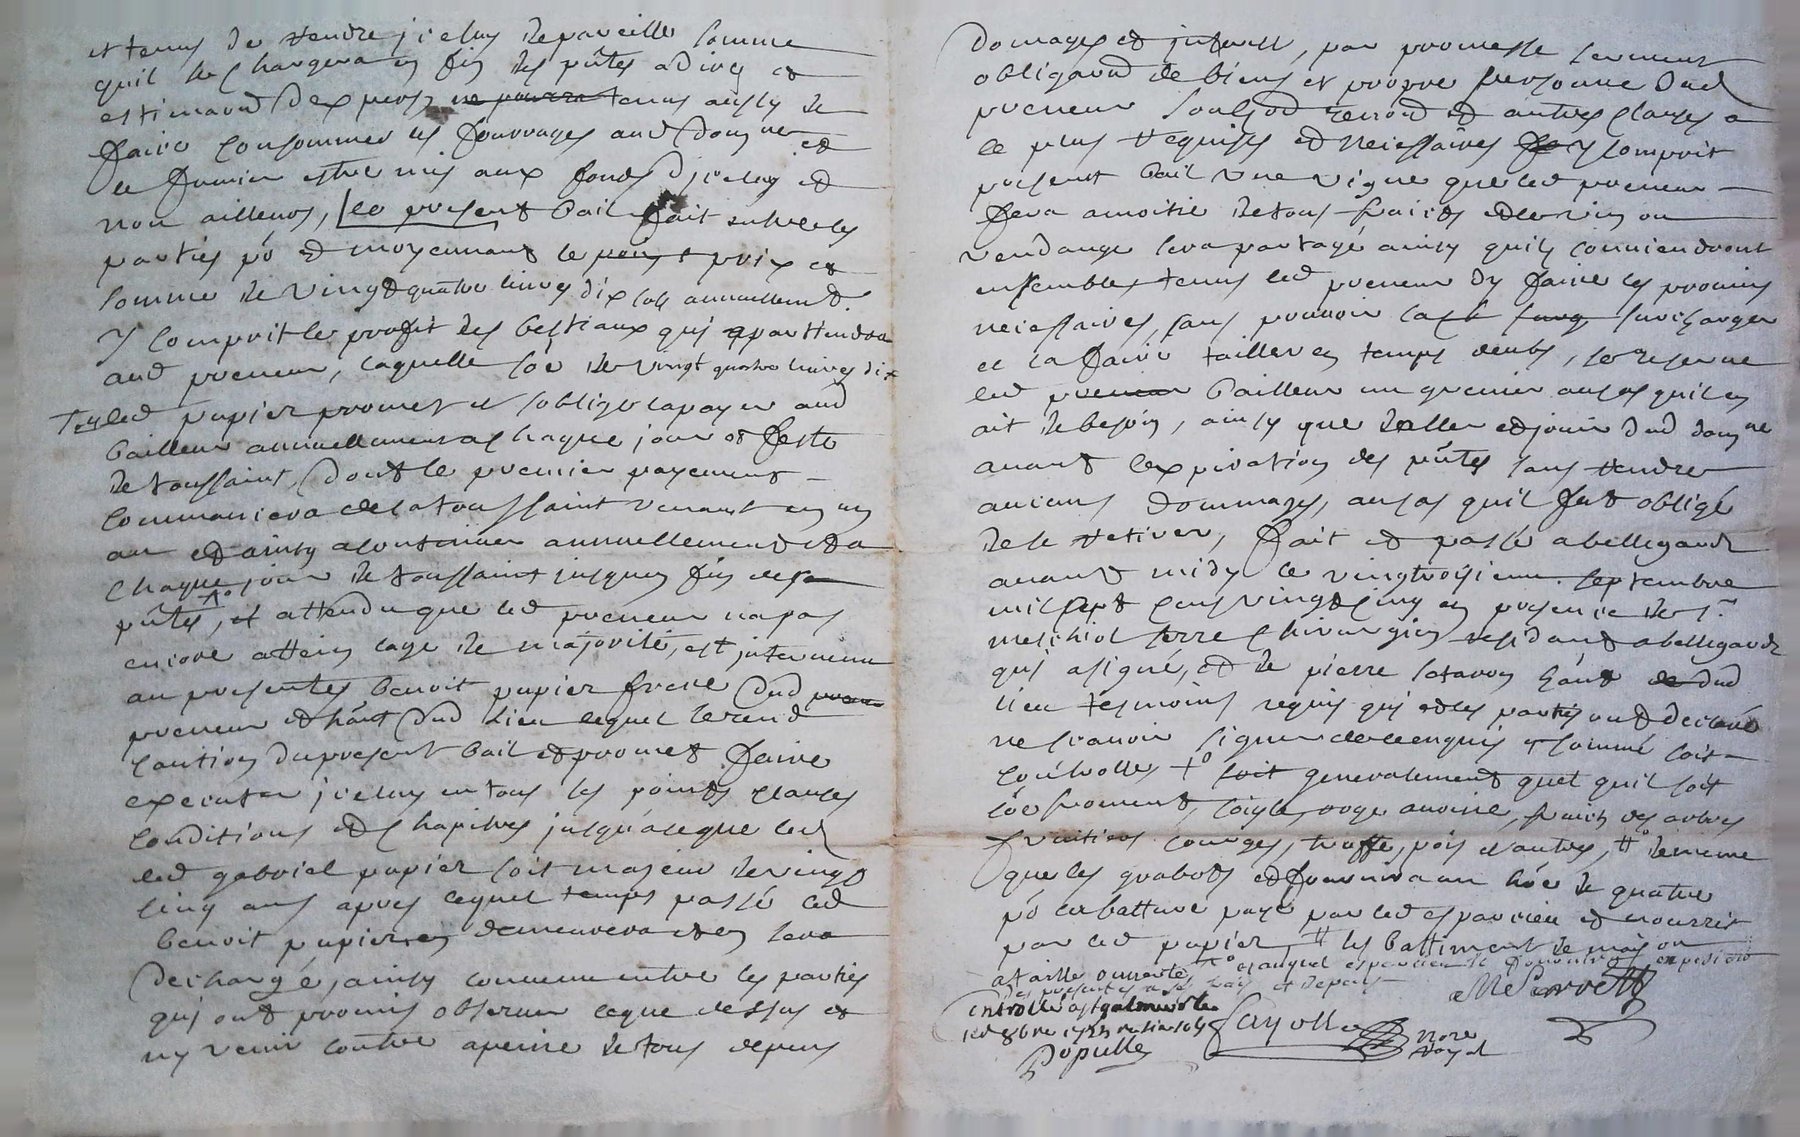 et tenus de rendre jceluy de pareille somme
quil se chargera en fin des pntes a dire et
estimaon dexpers ne pourra tenus aussy de
faire consommer les fourrages aud domne et
le fumier estre mis aux fonds djceluy et
non ailleurs, le present bail fait entre les
parties po et moyennant le prix et
somme de vingt quatre livres dix sols annuellement
y comprit le profit des bestiaux qui apartiendra
aud preneur, laquelle soe de vingt quatre livres dix
led papier promet et soblige la payer aud
bailleur annuellement a chaque jour et feste
de toussaint, dont le premier payement
commancera de la toussaint venant en un
an et ainsy a continuer annuellement et a
chaque jour de toussaint jusques fin des
pntes, et attendu que led preneur na pas
encore attein lage de majorité, est jntervenu
au presentes benoit papier frere dud
preneur et hant dud lieu lequel se rend
caution du present bail et promet faire
executer jceluy en tous ses points clauses
conditions et chapitres jusqua ce que led
led gabriel papier soit majeur de vingt
cinq ans apres lequel temps passé led
benoit papier en demeurera et en sera
dechargé, ainsy convenu entre les parties
qui ont promis observer ce que dessus et
ny venir contre a peine de tous depens
domages et jnterest, par promesse serment
obligaond de biens et propre personne dud
preneur et autres clauses a
ce plus requises et neicessaires y comprit
present bail une vigne que led preneur
fera a moitie de tous fraicts et le vin ou
vendange sera partagé ainsy quils conviendront
ensembles tenus led preneur dy faire les provins
neicessaires, sans pouvoir la surcharger
et la faire tailler en temps deubs, se reserve
led preneur bailleur un grenier au cas quil en
ait de besoin, ainsy que daller et jouir dud domne
avant lexpiration des pntes sans rendre
aucuns dommages, au cas quil fut obligé
de se retirer, fait et passé a bellegarde
avant midy le vingtroisieme septembre
mil sept cens vingt cinq en presence de sr
melchiol serre chirurgien residant a bellegarde
qui a signé, et de pierre hant de dud
lieu tesmoins requis qui et les parties ont declaré
ne scavoir signer de ce enquis et sommé soit
controllé, soit generalement quel quil soit
soe froment, soigle, orge avoine, fruits des arbres
fruitiers courges, truffe, pois et autres, de meme
que les et fournira un hoe de quatre
po la batture payé par led esparvieu et nourrit
par led papier les battiment de main
a taille ouverte auquel
des presentes a ses frais et depens
controllé a st galmier le
1725
Populle
Sayolle
nore royal
MSerrett